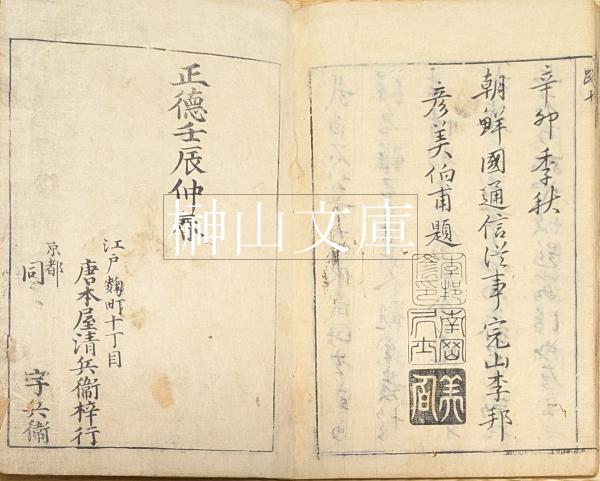 辛卯季秋
朝鮮國通信從事完山李邦
彦美伯甫題
李邦
彦印
南岡
美
正德壬辰仲春
江戸麹町十丁目
唐本屋清兵衛梓行
京都
同 宇兵衛
榊山文庫